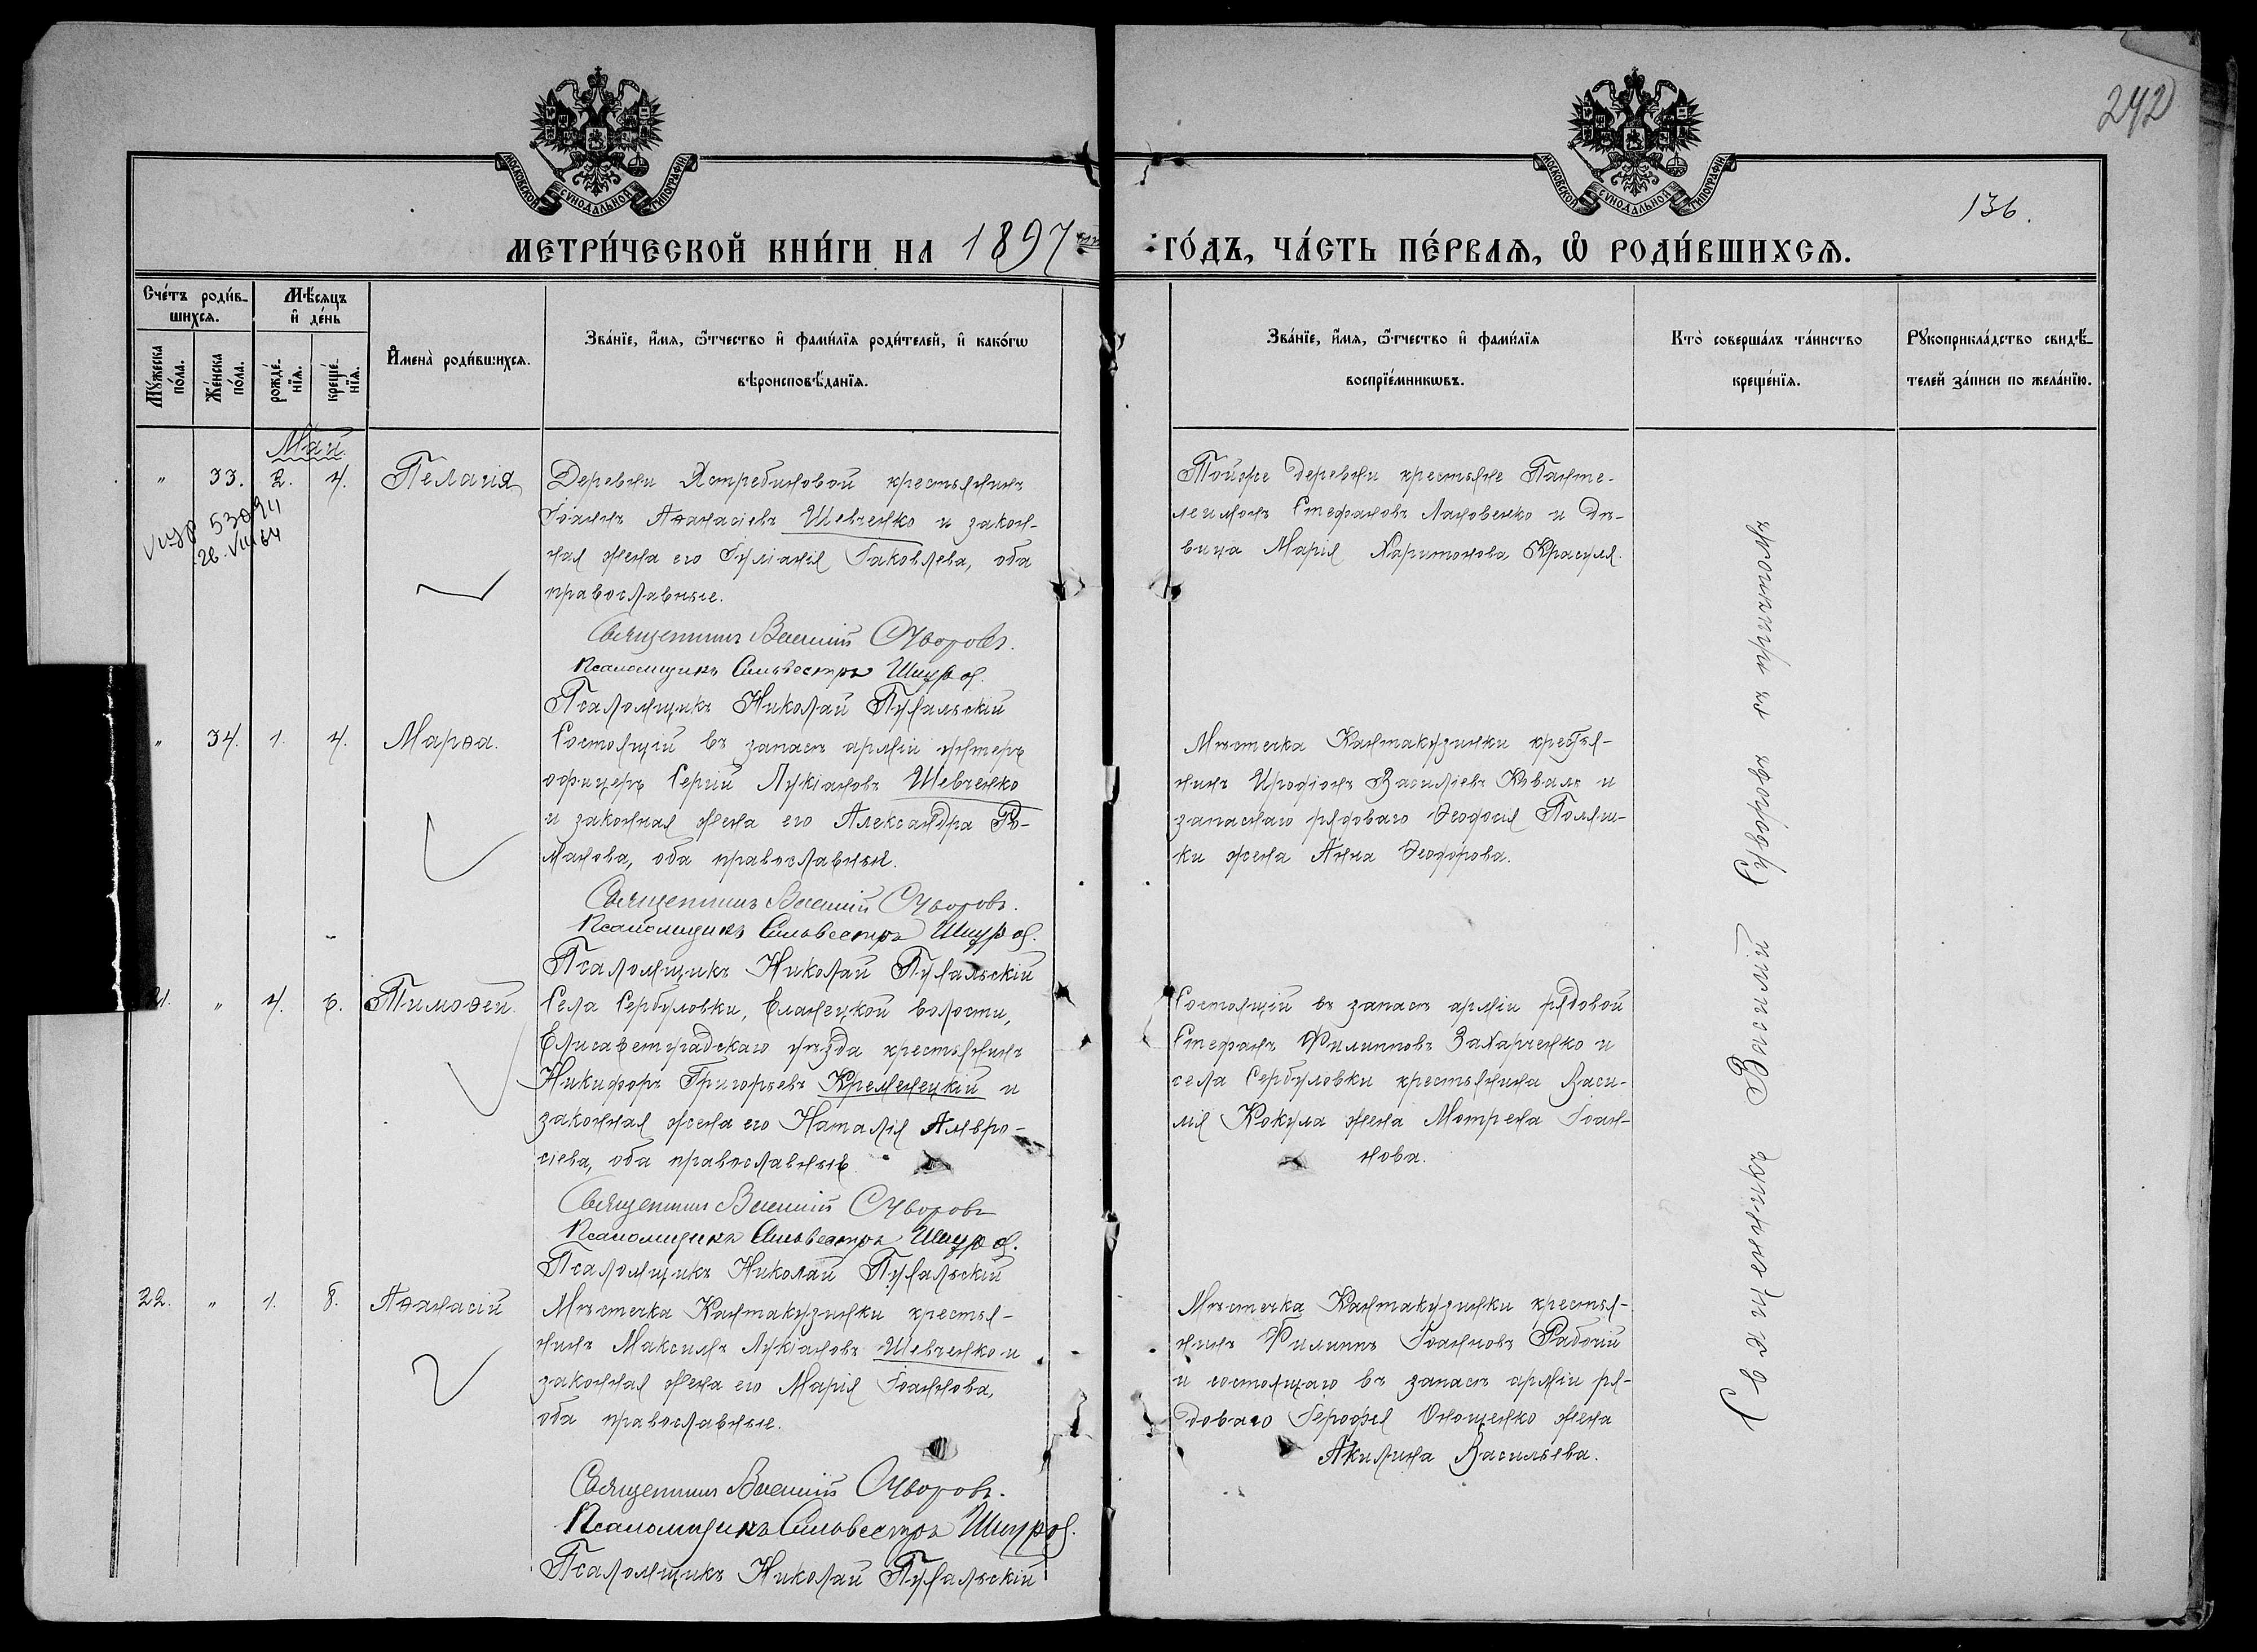 242
136.
МОСКОВСКОЙ СѴНОДАЛЬНОЙ ТИПОГРАФІИ
МОСКОВСКОЙ СѴНОДАЛЬНОЙ ТИПОГРАФІИ
МЕТРИ́ЧЕСКОЙ КНИ́ГИ НА 1897
ГО́ДЪ, ЧА́СТЬ ПЕ́РВАѦ, Ѽ РОДИ́ВШИХСѦ.
Сче́тъ роди́в-
шихсѧ.
Мѣ́сѧцъ
и҆ де́нь
Мꙋ́жеска
по́ла.
Же́нска
по́ла.
рожде́-
нїѧ.
креще́-
нїѧ.
И҆мена̀ роди́вшихсѧ.
Зва́нїе, и҆́мѧ, ѻ҆́тчество и҆ фами́лїѧ роди́телей, и҆ како́гѡ
вѣроисповѣ́данїѧ.
Зва́нїе, и҆́мѧ, ѻ҆́тчество и҆ фами́лїѧ
воспрїе́мникѡвъ.
Кто̀ соверша́лъ та́инство
креще́нїѧ.
Рꙋкоприкла́дство свидѣ́-
телей за́писи по жела́нїю.
Май.
" 33. 2. 4. Пелагія
53094
26.VIII 64
Деревни Ястребиновой крестьянинъ
Іоаннъ Аѳанасіевъ Шевченко и закон-
ная жена его Іуліанія Іаковлева, оба
православные.
Священникъ Василій Суворовъ.
Псаломщикъ Сильвестръ
Псаломщикъ Николай
Тойже деревни крестьяне Панте-
леимонъ Стефановъ Лановенко и дѣ-
вица Марія Харитонова Красуля.
" 34. 1. 4. Марѳа.
Состоящій въ запасѣ арміи унтеръ
офицеръ Сергій Лукіановъ Шевченко
и законная жена его Александра Ро-
манова, оба православные.
Священникъ Василій Суворовъ.
Псаломщикъ Сильвестръ
Псаломщикъ Николай
Мѣстечка Кантакузинки крестья-
нинъ Иродіонъ Василіевъ Коваль и
запаснаго рядоваго Ѳеодосія
жена Анна Ѳеодорова.
21. " 4. 6. Тимоѳей.
Села Сербуловки, Еланецкой волости,
Елисаветградскаго уѣзда крестьянинъ
Никифоръ Григорьевъ Кременецкій и
законная жена его Наталія Амвро-
сіева, оба православные.
Священникъ Василій Суворовъ
Псаломщикъ Сильвестръ
Псаломщикъ Николай
Состоящій въ запасѣ арміи рядовой
Стефанъ Филипповъ Захарченко и
села Сербуловки крестьянина Васи-
лія Кокула жена Мотрена Іоан-
нова.
22. " 1. 8. Аѳанасій
Мѣстечка Кантакузинки крестья-
нинъ Максимъ Лукіановъ Шевченко и
законная жена его Марія Іоаннова,
оба православные.
Священникъ Василій Суворовъ.
Псаломщикъ Сильвестръ
Псаломщикъ Николай
Мѣстечка Кантакузинки крестья-
нинъ Филиппъ Іоанновъ Рабочій
и состоящаго въ запасѣ арміи ря-
доваго Іерофея Онощенко жена
Акилина Васильева.
Священникъ Василій Суворовъ съ причтомъ